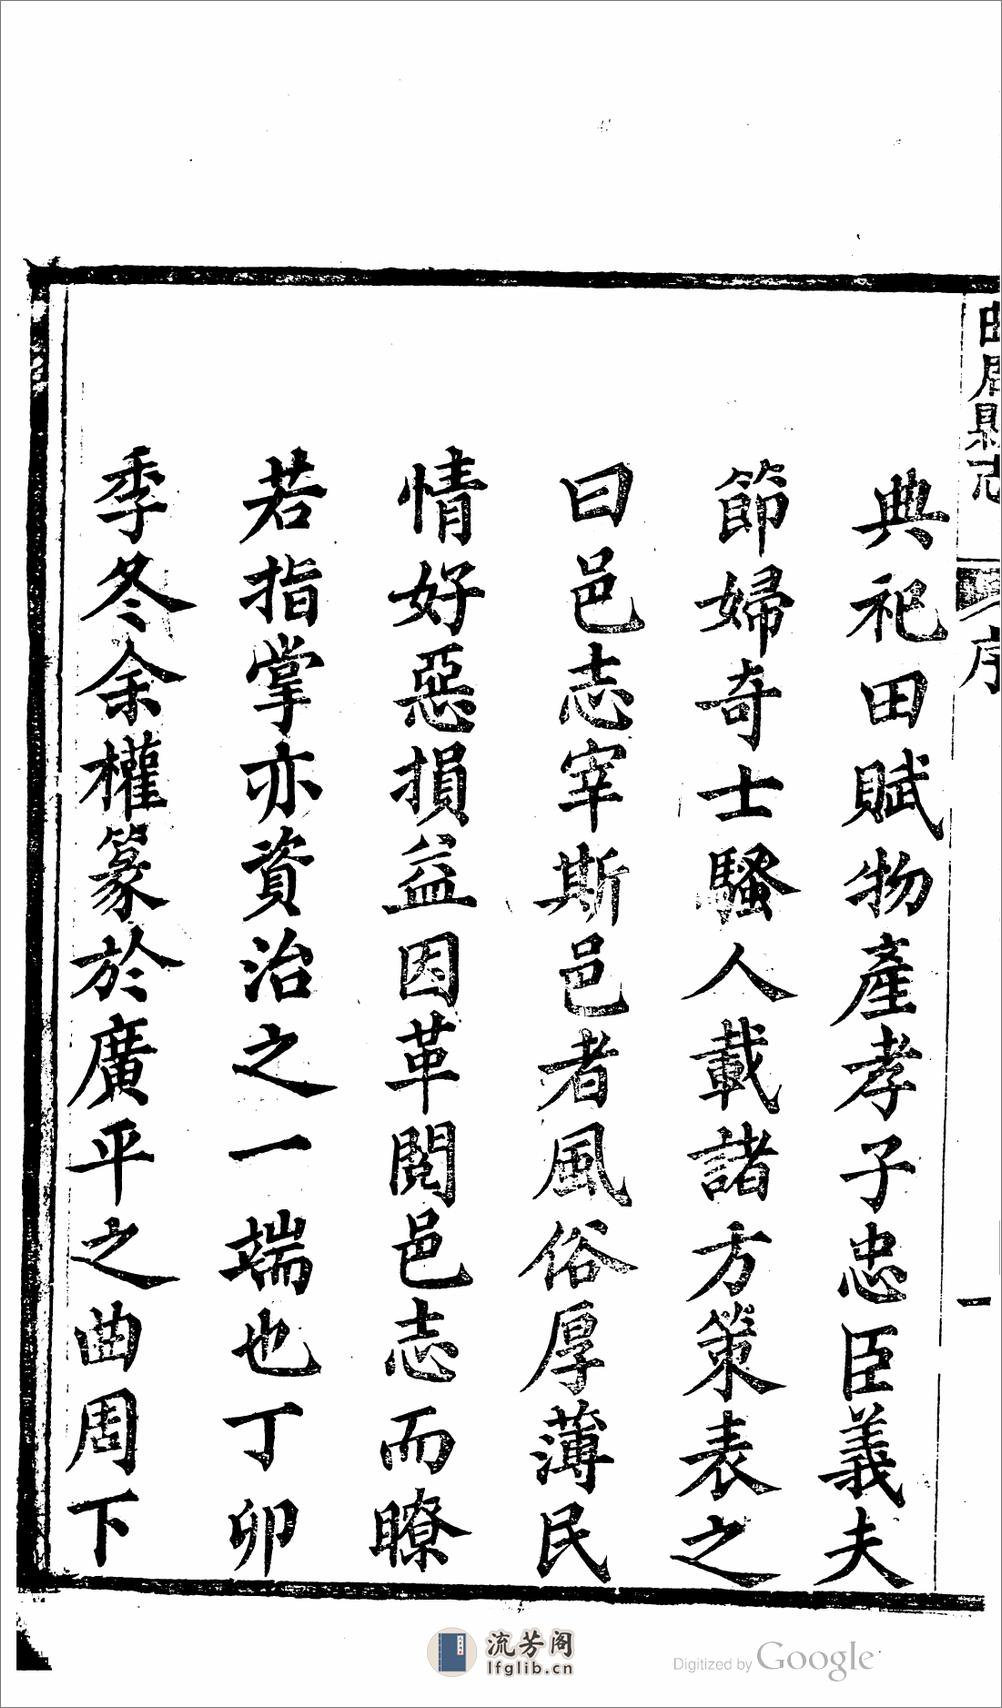 曲周縣志
序
一
典祀田賦物產孝子忠臣義夫
節婦奇士騷人載諸方策表之
曰邑志宰斯邑者風俗厚薄民
情好惡損益因革閱邑志而瞭
若指掌亦資治之一端也丁卯
季冬余權篆於廣平之曲周下
流芳阁
lfglib.cn
Digitized by Google